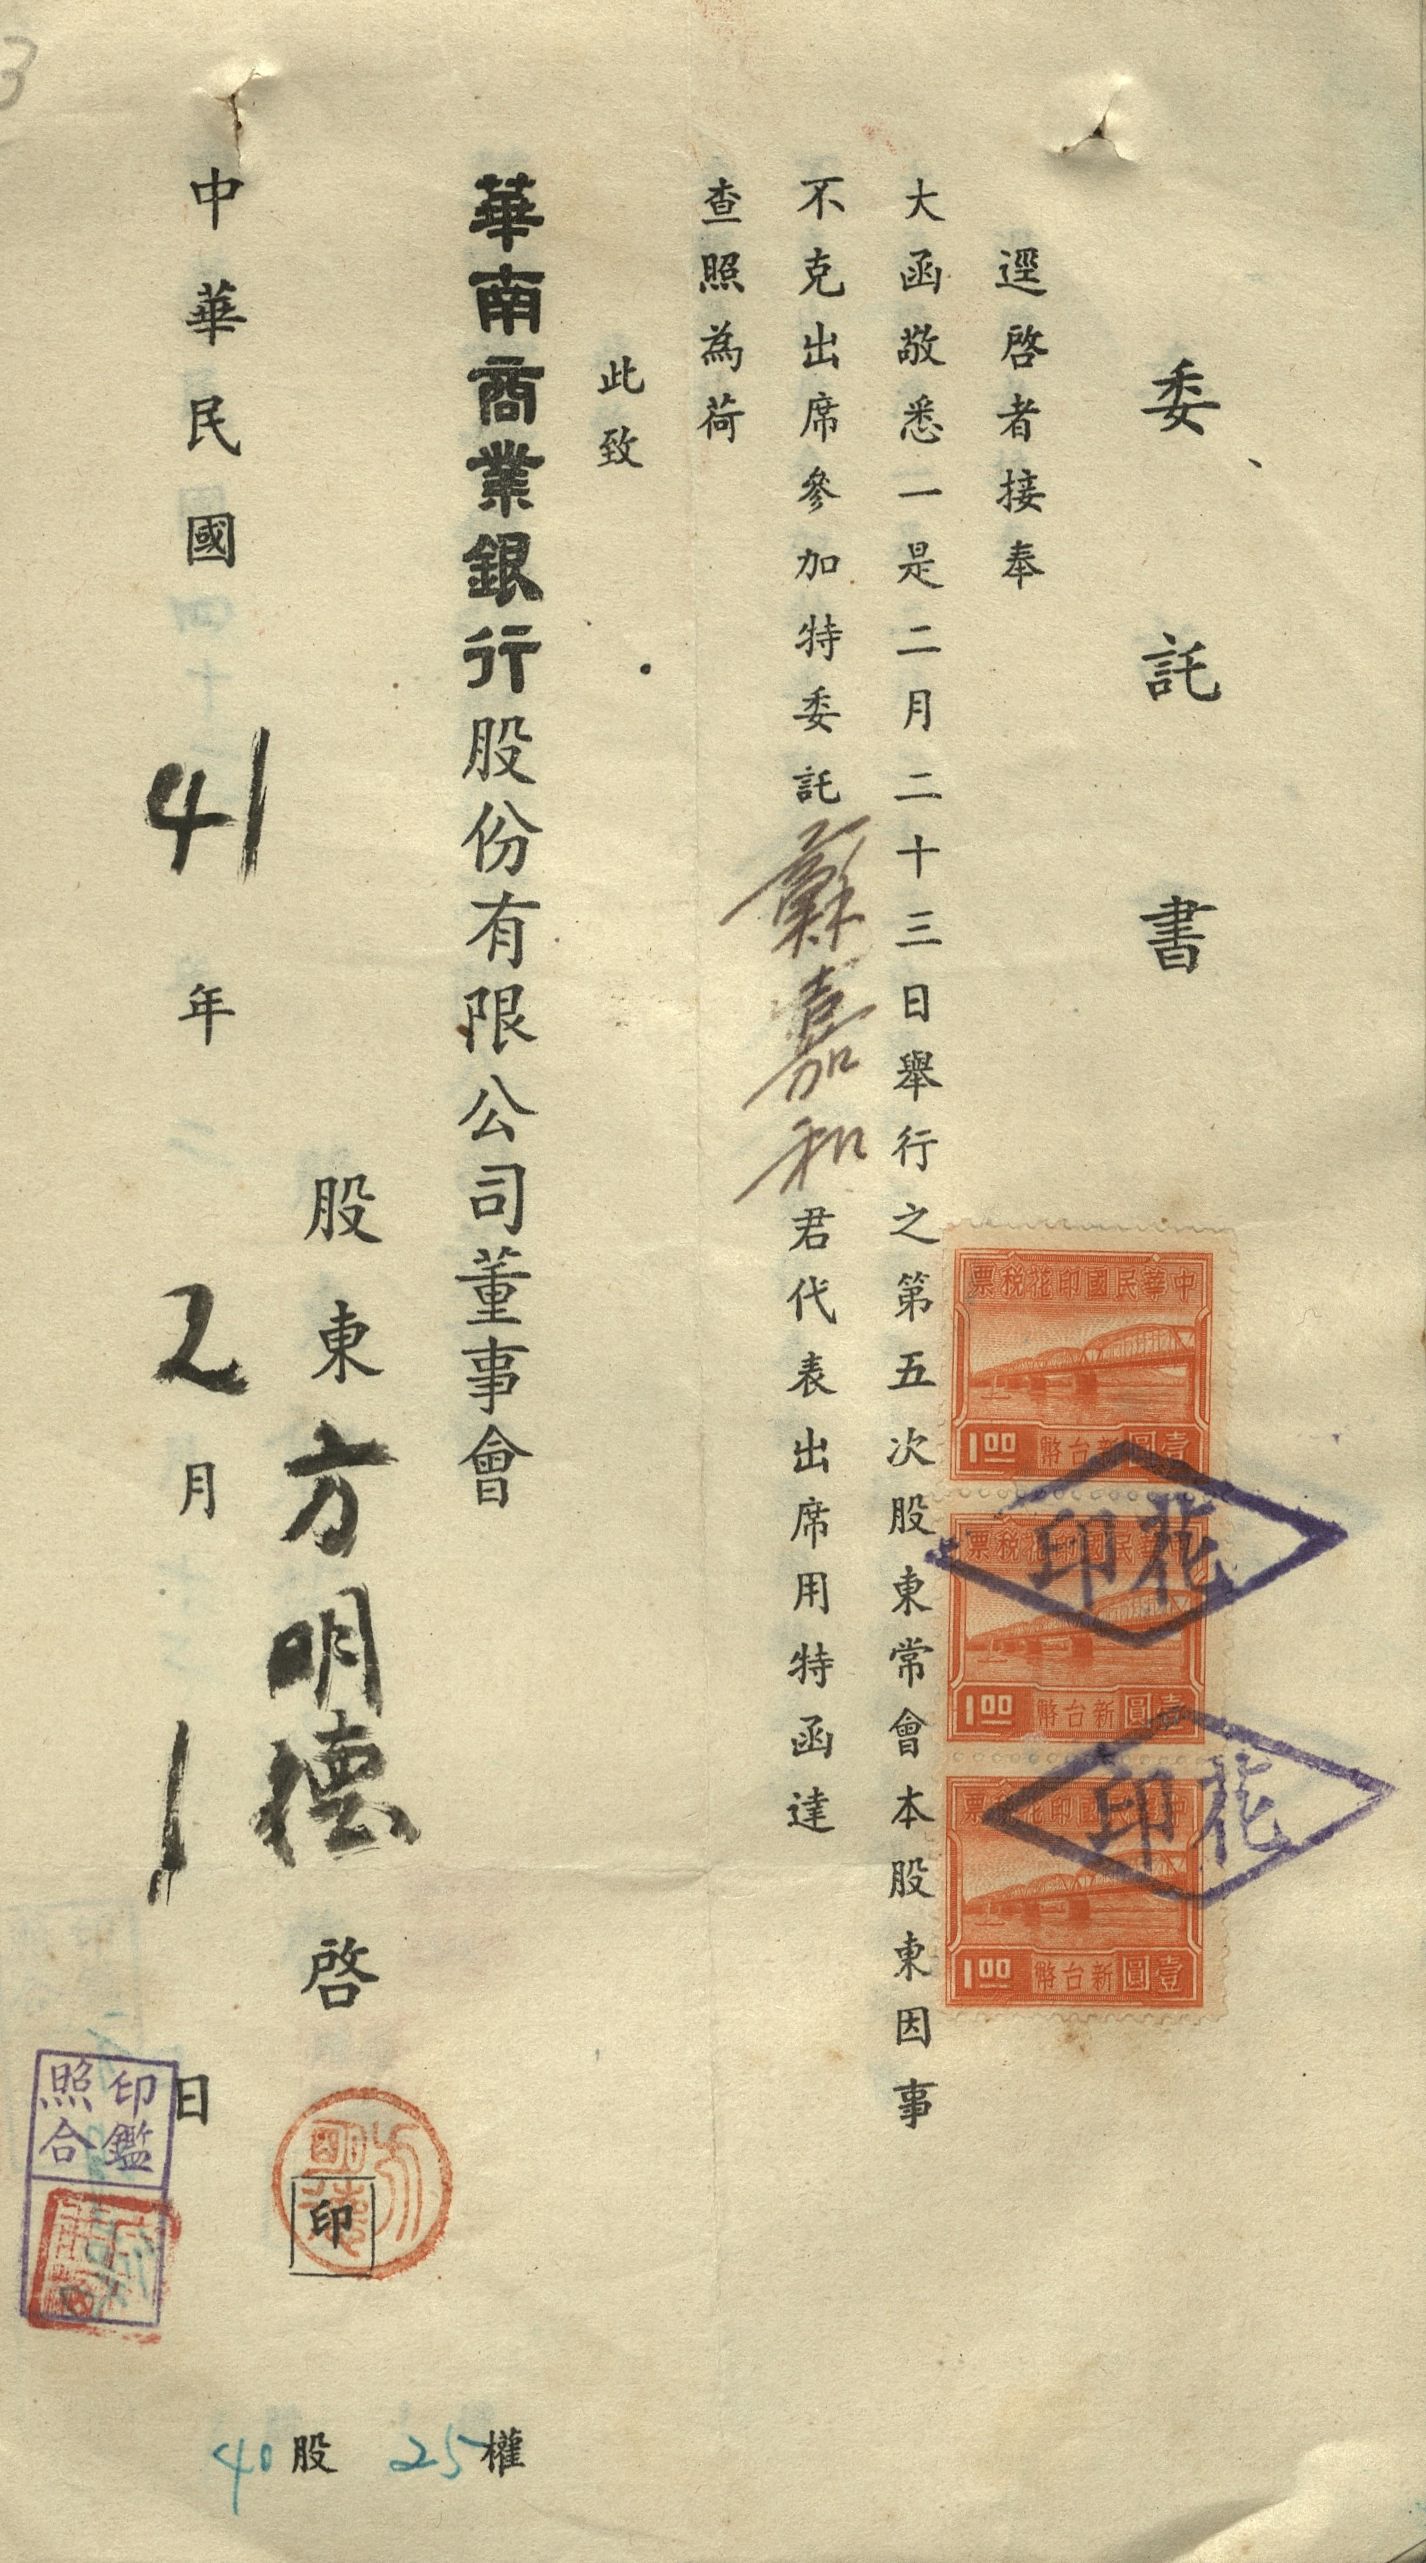 委託書
逕啓者接奉
大函敬悉一是二月二十三日舉行之第五次股東常會本股東因事
不克出席參加特委託蘇嘉和君代表出席用特函達
查照為荷
此致
華南商業銀行股份有限公司董事會
股東方明德啓
印
中華民國41年2月1日
40股 25權
印鑑
照合
中華民國印花稅票
壹圓新台幣 1.00
中華民國印花稅票
壹圓新台幣 1.00
中華民國印花稅票
壹圓新台幣 1.00
花印
花印
方明德
3